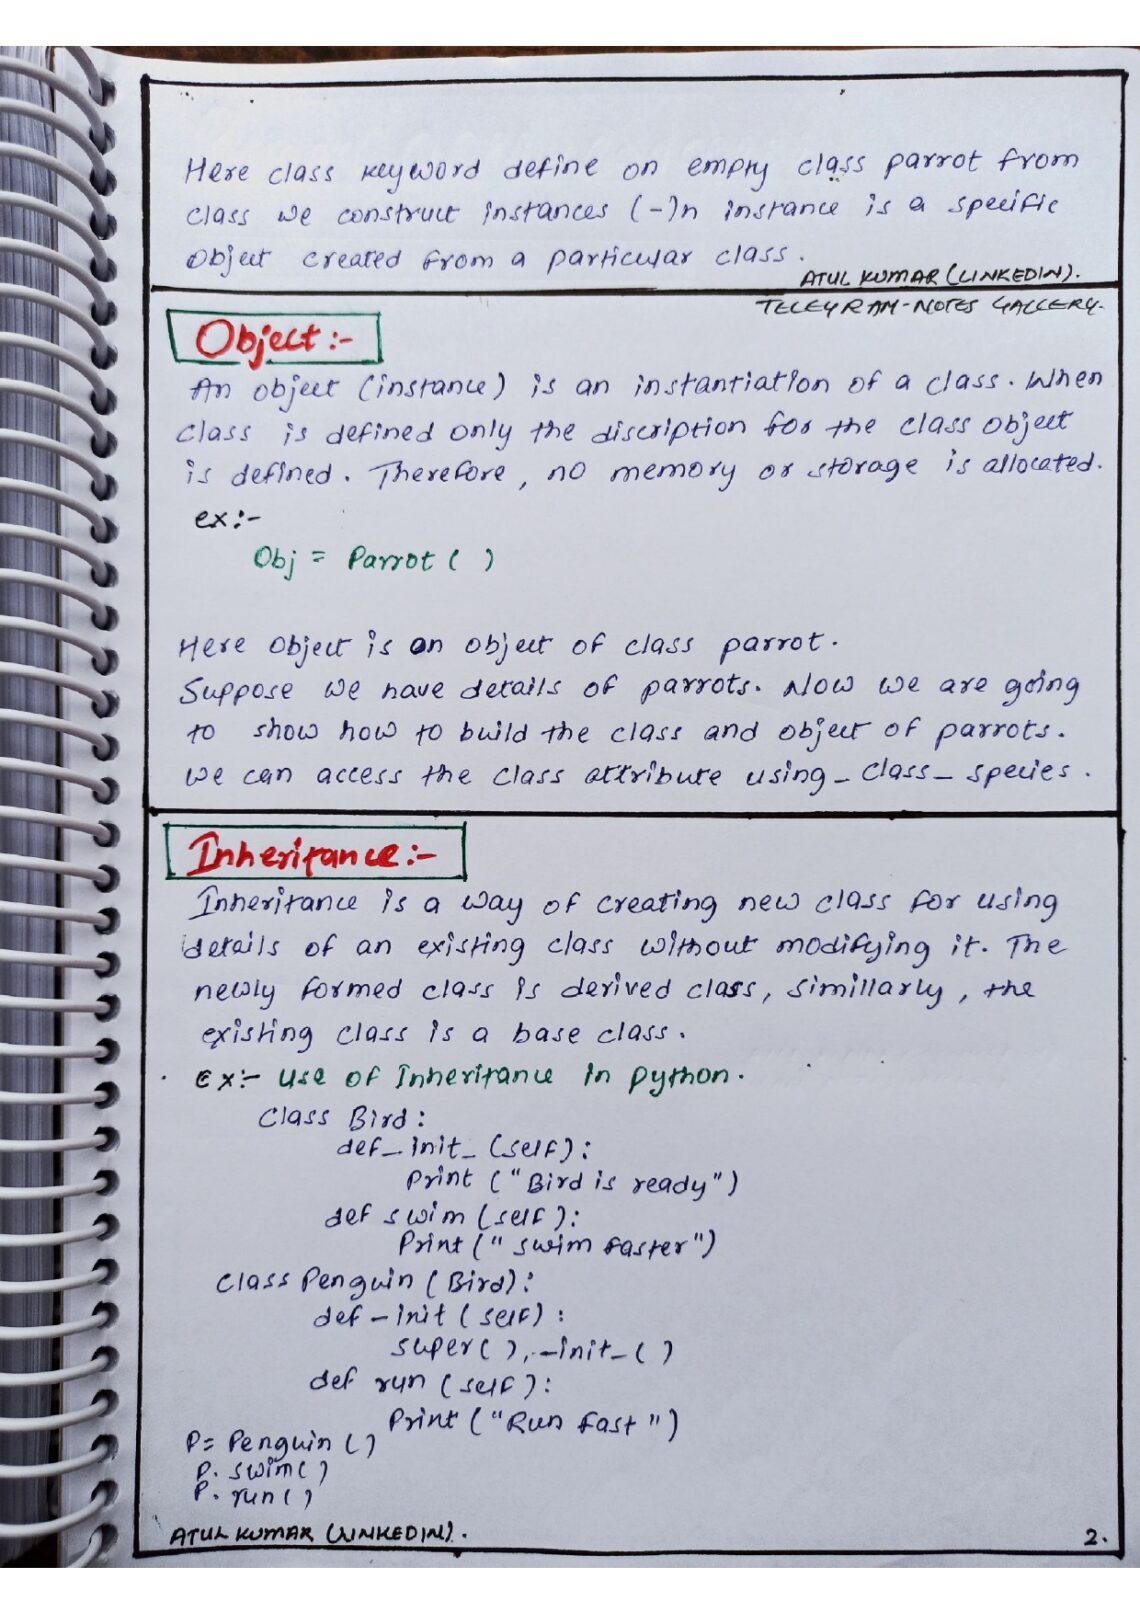 Here class keyword define on empty class parrot from
class we construct instances (-)n instance is a specific
object created from a particular class.
ATUL KUMAR (LINKEDIN).
TELEGRAM-NOTES GALLERY.
Object :-
An object (instance) is an instantiation of a class. When
class is defined only the discription for the class object
is defined. Therefore, no memory or storage is allocated.
ex:-
Obj = Parrot ( )
Here object is an object of class parrot.
Suppose we have details of parrots. Now we are going
to show how to build the class and object of parrots.
we can access the class attribute using _ class _ species.
Inheritance :-
Inheritance is a way of creating new class for using
details of an existing class without modifying it. The
newly formed class is derived class, simillarly, the
existing class is a base class.
Ex:- Use of Inheritance in python.
Class Bird :
def _ init _ (self) :
Print ("Bird is ready")
def swim (self) :
Print (" swim faster")
Class Penguin (Bird) :
def - init (self) :
super( ), -init_( )
def run (self) :
Print ("Run fast ")
P= Penguin ( )
P. swim( )
P. run( )
ATUL KUMAR (LINKEDIN).
2.